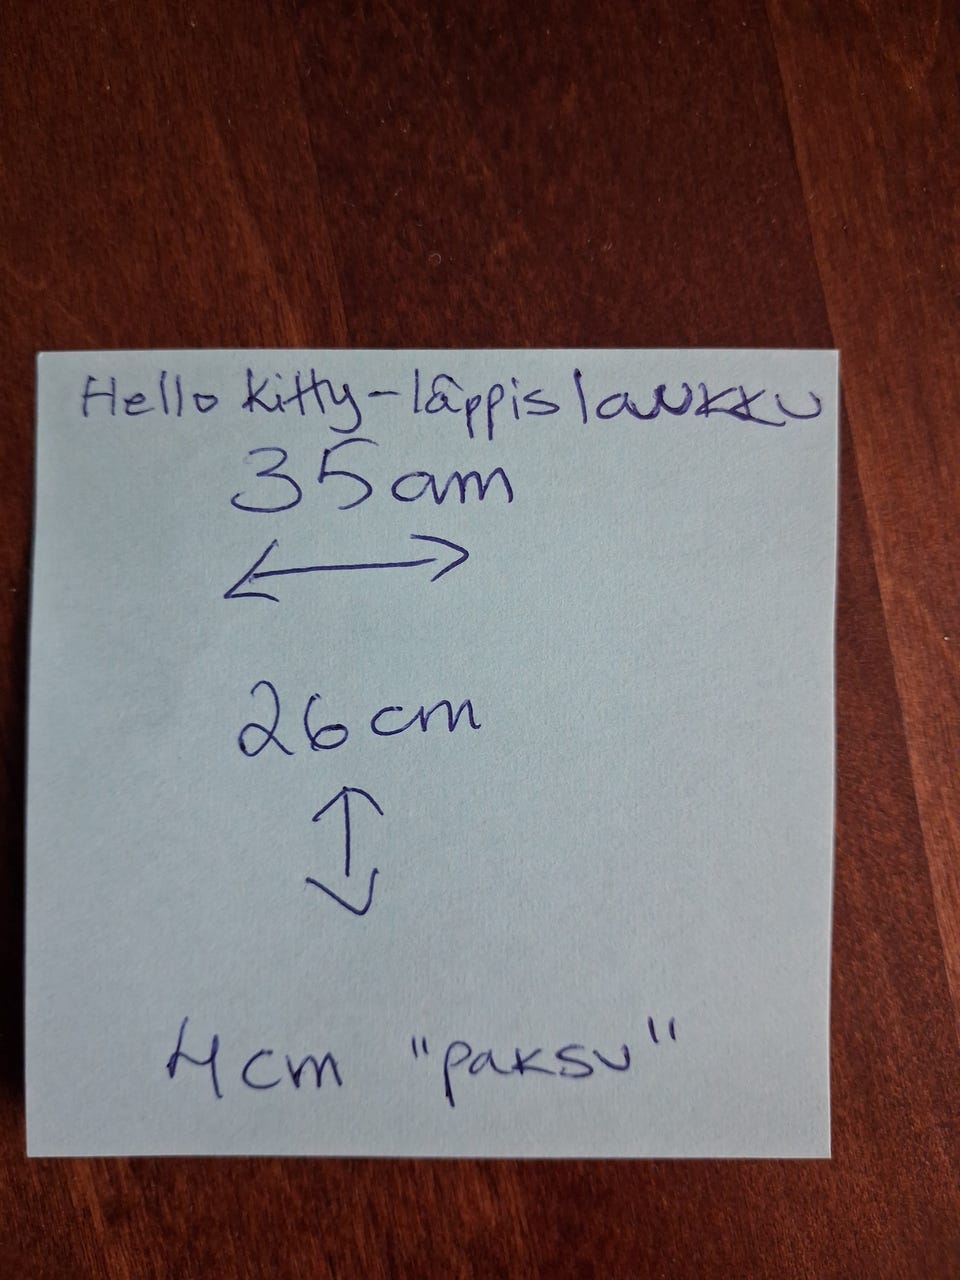 Hello kitty-läppislaukku
35 cm
26 cm
4 cm "paksu"